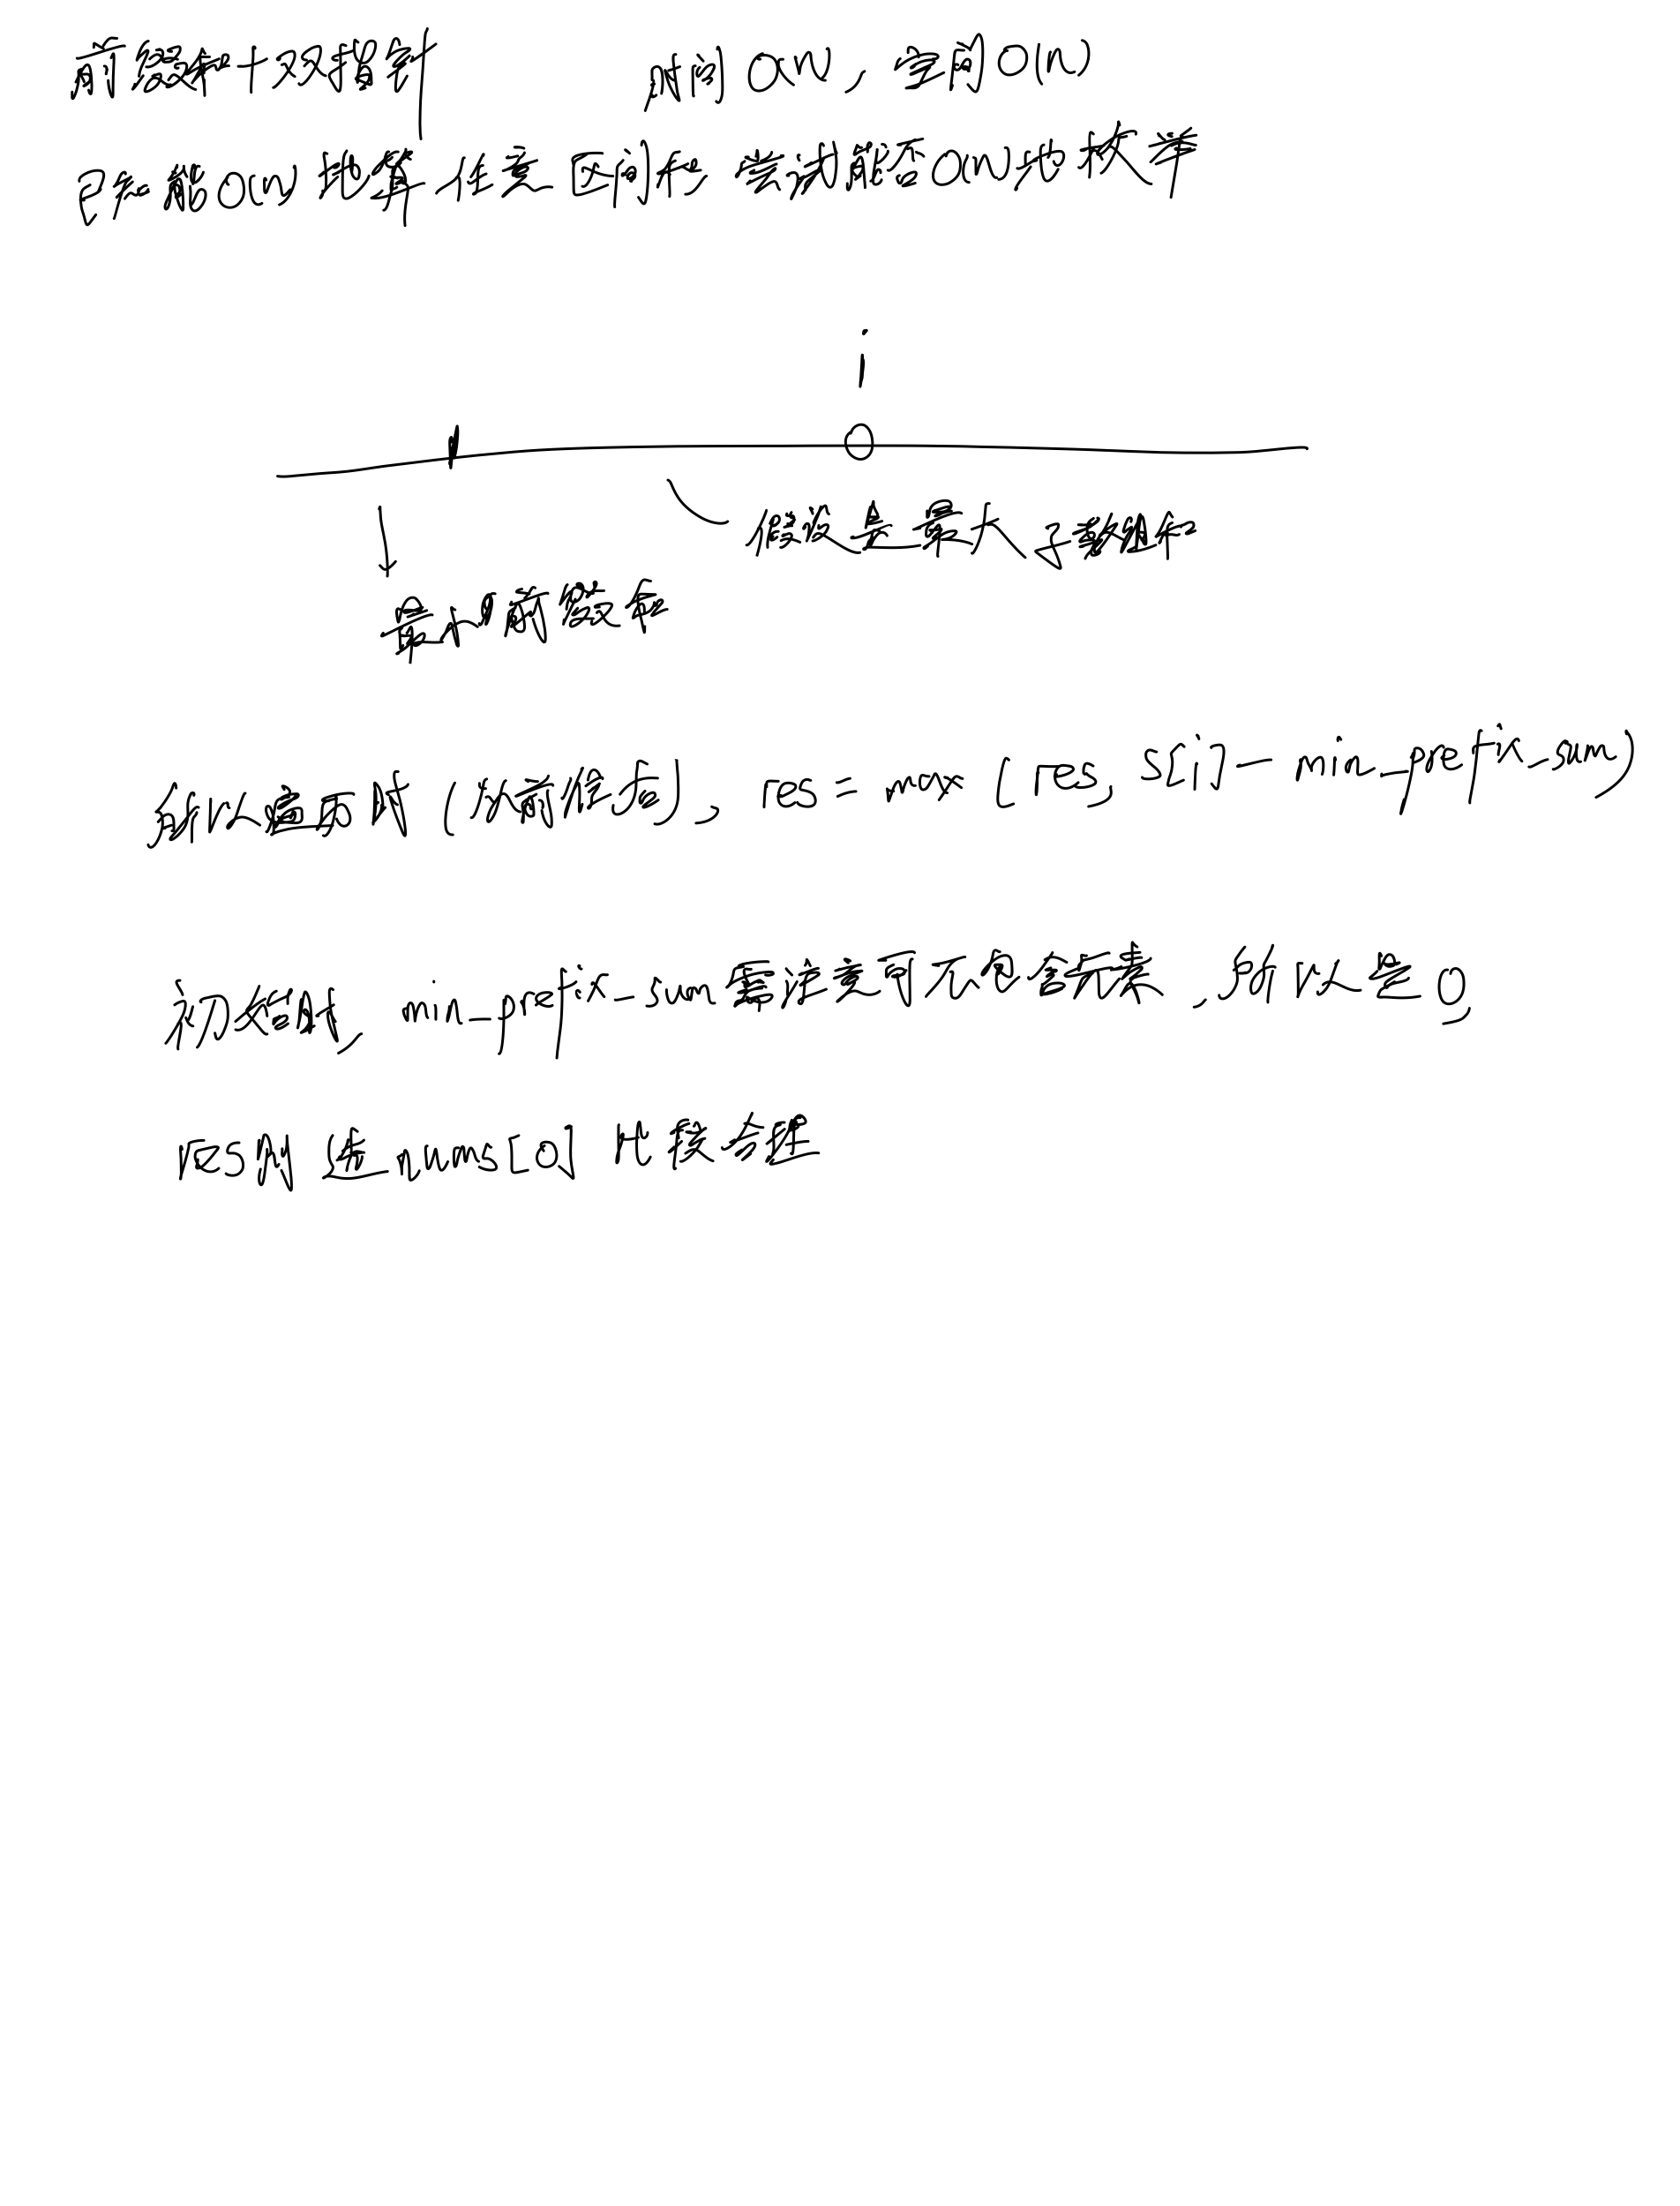 前缀和+双指针 时间O(N), 空间O(N)
已知能O(N)地算任意区间和, 尝试能否O(N)地枚举
i
假设是最大子数组和
最小前缀和
所以遍历时(从前往后), res = max(res, s[i] - min_prefix_sum)
初始时, min_prefix_sum需注意可不包含元素, 所以是0,
res则是nums[0]比较合理